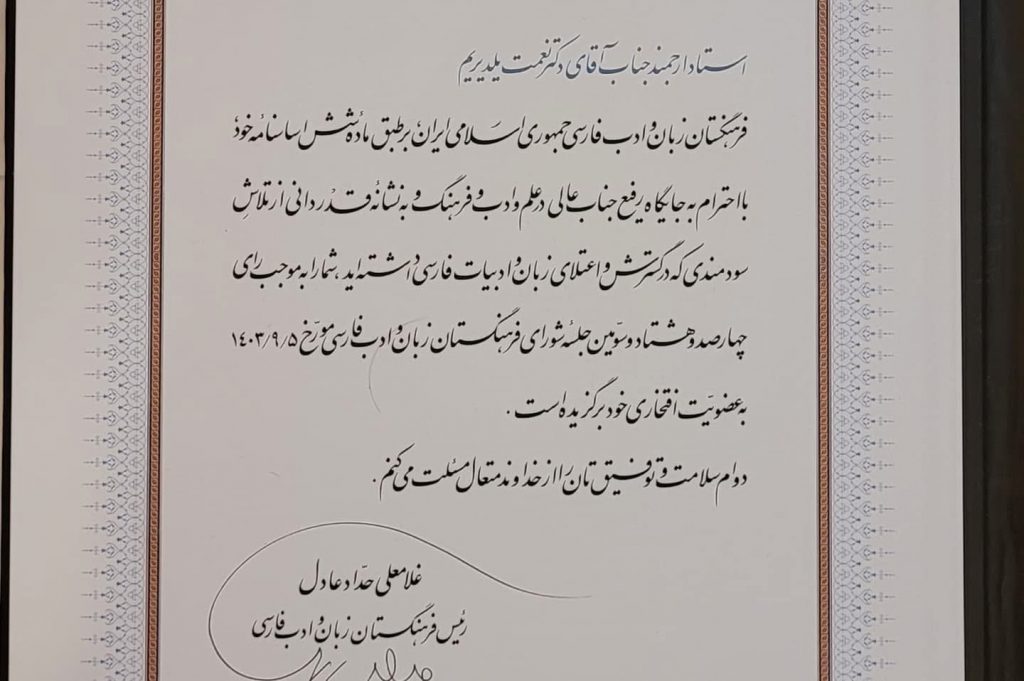 استاد ارجمند جناب آقای دکتر نعمت ییلدیریم
فرهنگستان زبان و ادب فارسی جمهوری اسلامی ایران بر طبق مادهٔ شش اساسنامه خود
با احترام به جایگاه رفیع جناب عالی در علم و ادب و فرهنگ و به نشانهٔ قدردانی از تلاشِ
سودمندی که در گسترش و اعتلای زبان و ادبیات فارسی داشته‌اید، شما را به موجب رای
چهارصد و هشتاد و سوّمین جلسهٔ شورای فرهنگستان زبان و ادب فارسی مورّخ ۱۴۰۳/۹/۵
به عضویّت افتخاری خود برگزیده است.
دوام سلامت و توفیق تان را از خداوند متعال مسئلت می‌کنم.
غلامعلی حدّاد عادل
رئیس فرهنگستان زبان و ادب فارسی